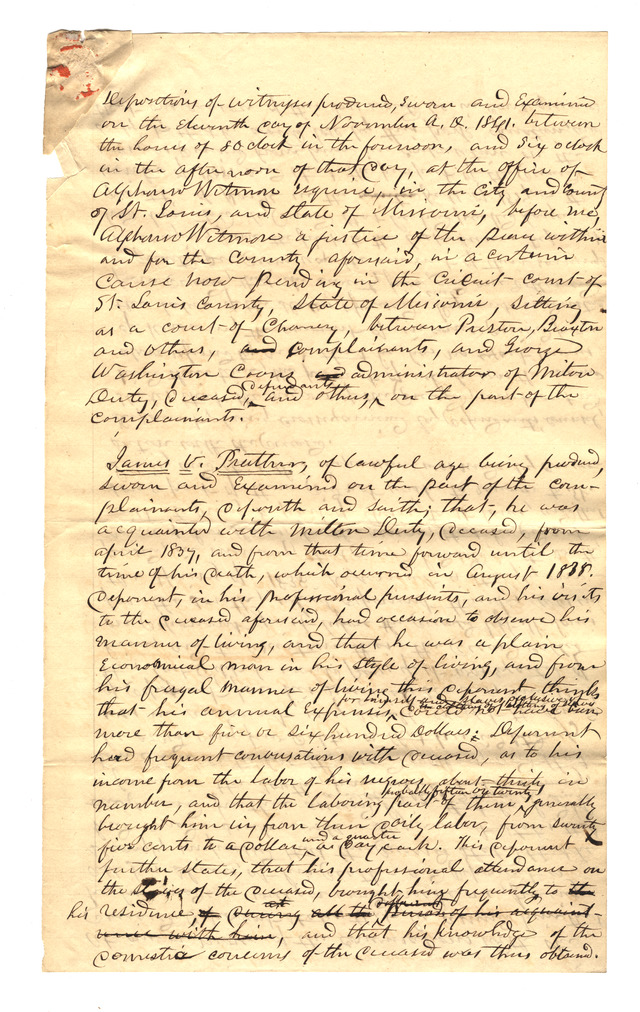 Depositions of witnesses produced, sworn and Examined
on the Eleventh day of November A. D. 1841. between
the hours of 8 oclock in the forenoon, and Six oclock
in the afternoon of that day, at the office of
Alphonso Wetmore Esquire, in the City and County
of St. Louis, and State of Missouri, before me,
Alphonso Wetmore a justice of the peace within
and for the County aforesaid, in a certain
Cause now pending in the Circuit court of
St. Louis County, State of Missouri, Sitting
as a court of Chancery, between Preston, Brayton
and others, and complainants, and George
Washington Coons and administrator of Milton
Duty, deceased, and others, defendants, on the part of the
complainants.
James V. Prather, of lawful age being produced,
sworn and Examined on the part of the com-
plainants, deposeth and saith; that, he was
acquainted with Milton Duty, deceased, from
april 1837, and from that time forward until the
time of his death, which occurred in August 1838.
deponent, in his professional pursuits, and his visits
to the deceased aforesaid, had occasion to observe his
manner of living, and that he was a plain
Economical man in his style of living, and from
his frugal manner of living this deponent thinks
that his annual Expenses, for himself and slaves exclusive of could not have been
more than five or six hundred Dollars; Deponent
had frequent conversations with deceased, as to his
income from the labor of his negroes, about thirty in
number, and that the laboring part of them, probably fifteen or twenty, generally
brought him in, from their daily labor, from seventy
five cents to a dollar and a quarter a day each. This deponent
further states, that his professional attendance on
the slaves of the deceased, brought him frequently to the
his residence, of during at all the different periods of his acquaint-
ance with him, and that his knowledge of the
domestic concerns of the deceased was thus obtained.